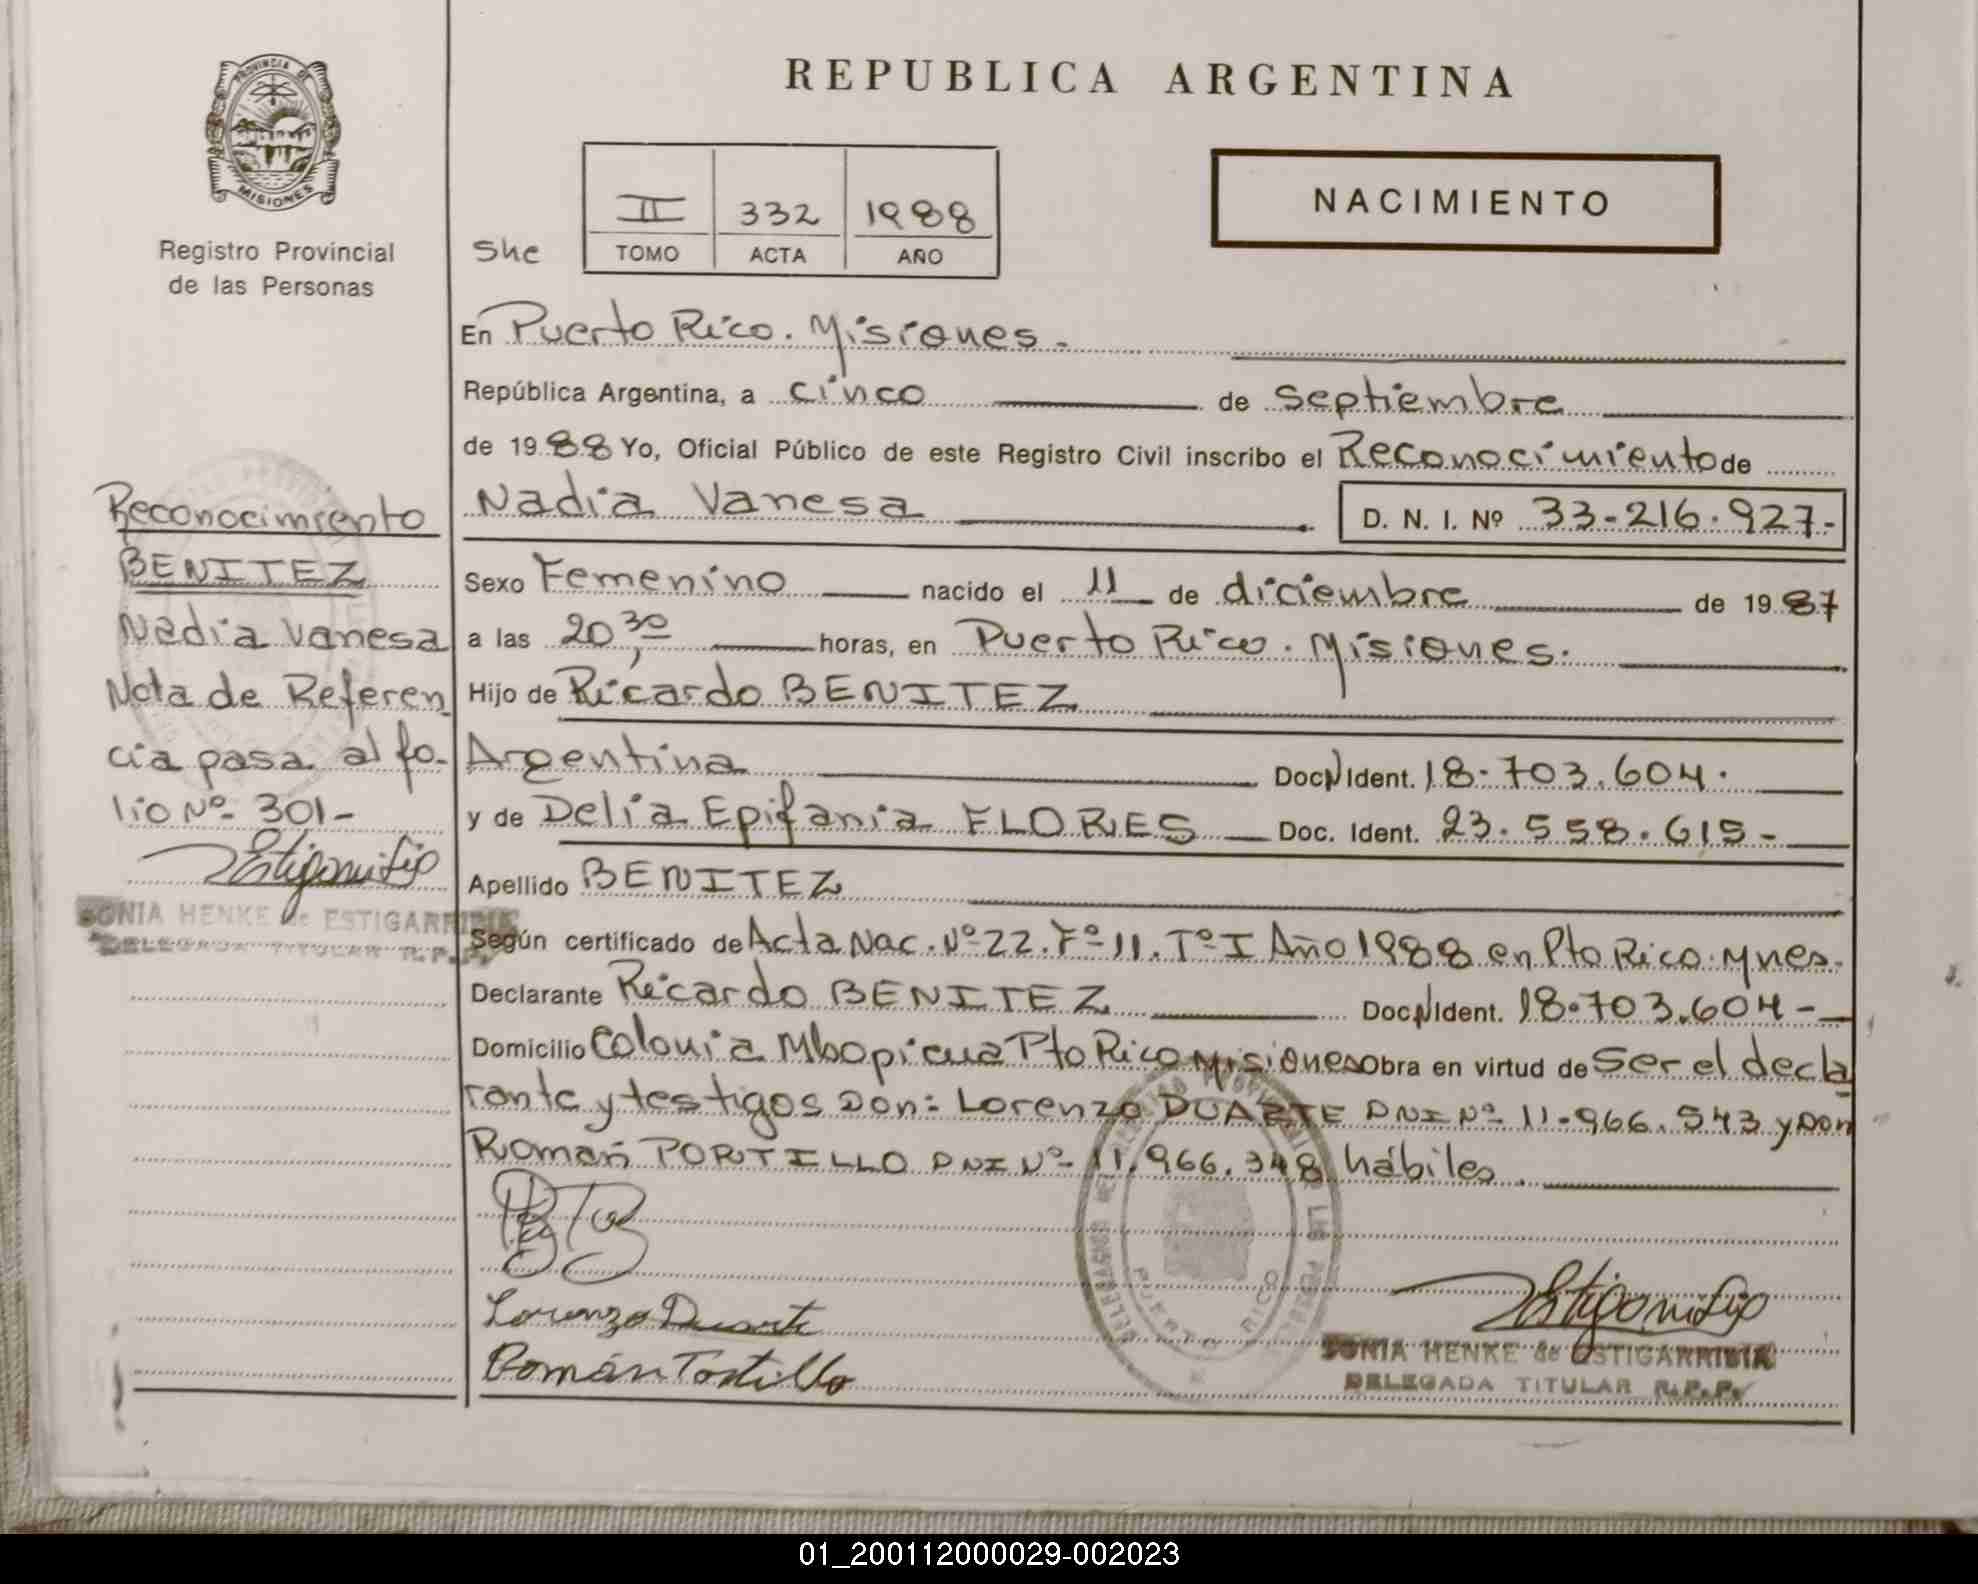 REPUBLICA ARGENTINA
PROVINCIA DE
MISIONES
Registro Provincial
de las Personas
She
II 332 1988
TOMO ACTA AÑO
NACIMIENTO
En Puerto Rico. Misiones.
República Argentina, a cinco de septiembre
de 1988 Yo, Oficial Público de este Registro Civil inscribo el Reconocimiento de
Nadia Vanesa D. N. I. Nº 33-216.927-
Sexo Femenino nacido el 11 de diciembre de 1987
a las 20,30 horas, en Puerto Rico. Misiones.
Hijo de Ricardo BENITEZ
Argentina Doc N Ident. 18.703.604.
y de Delia Epifania FLORES Doc. Ident. 23.558.615-
Apellido BENITEZ
Según certificado de Acta Nac. Nº 22. Fº 11. Tº I Año 1988 en Pto Rico. Mnes.
Declarante Ricardo BENITEZ Doc N Ident. 18.703.604-
Domicilio Colonia Mbopicua Pto Rico Misiones Obra en virtud de Ser el decla
rante y testigos Don: Lorenzo DUARTE DNI Nº 11.966.543 y Don
Román PORTILLO DNI Nº 11.966.348 hábiles.
Lorenzo Duarte
Román Portillo
SONIA HENKE de ESTIGARRIBIA
DELEGADA TITULAR R.P.P.
PUERTO RICO
Reconocimiento
BENITEZ
Nadia Vanesa
Nota de Referen
cia pasa al fo-
lio Nº 301-
SONIA HENKE de ESTIGARRIBIA
DELEGADA TITULAR R.P.P.
01_200112000029-002023